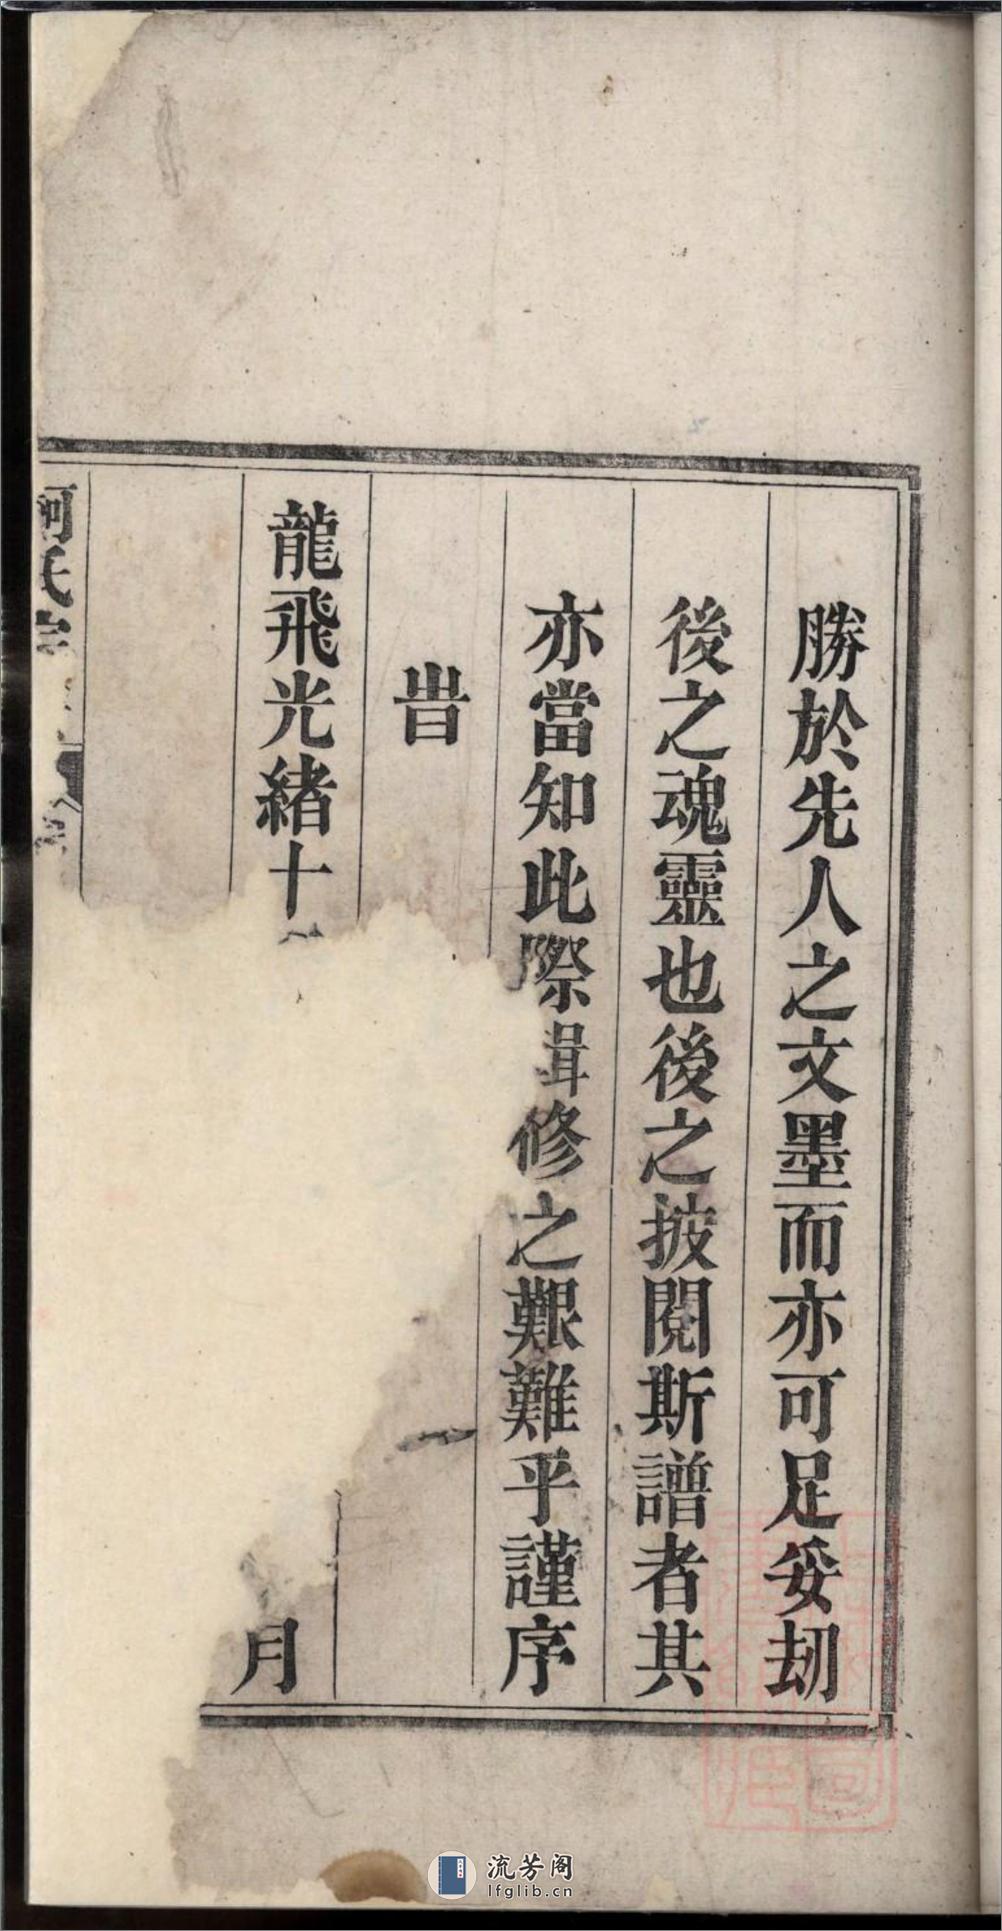 勝於先人之文墨而亦可足妥刼
後之魂靈也後之披閱斯譜者其
亦當知此際輯修之艱難乎謹序
旹
龍飛光緒十
月
氏
流芳阁
lfglib.cn